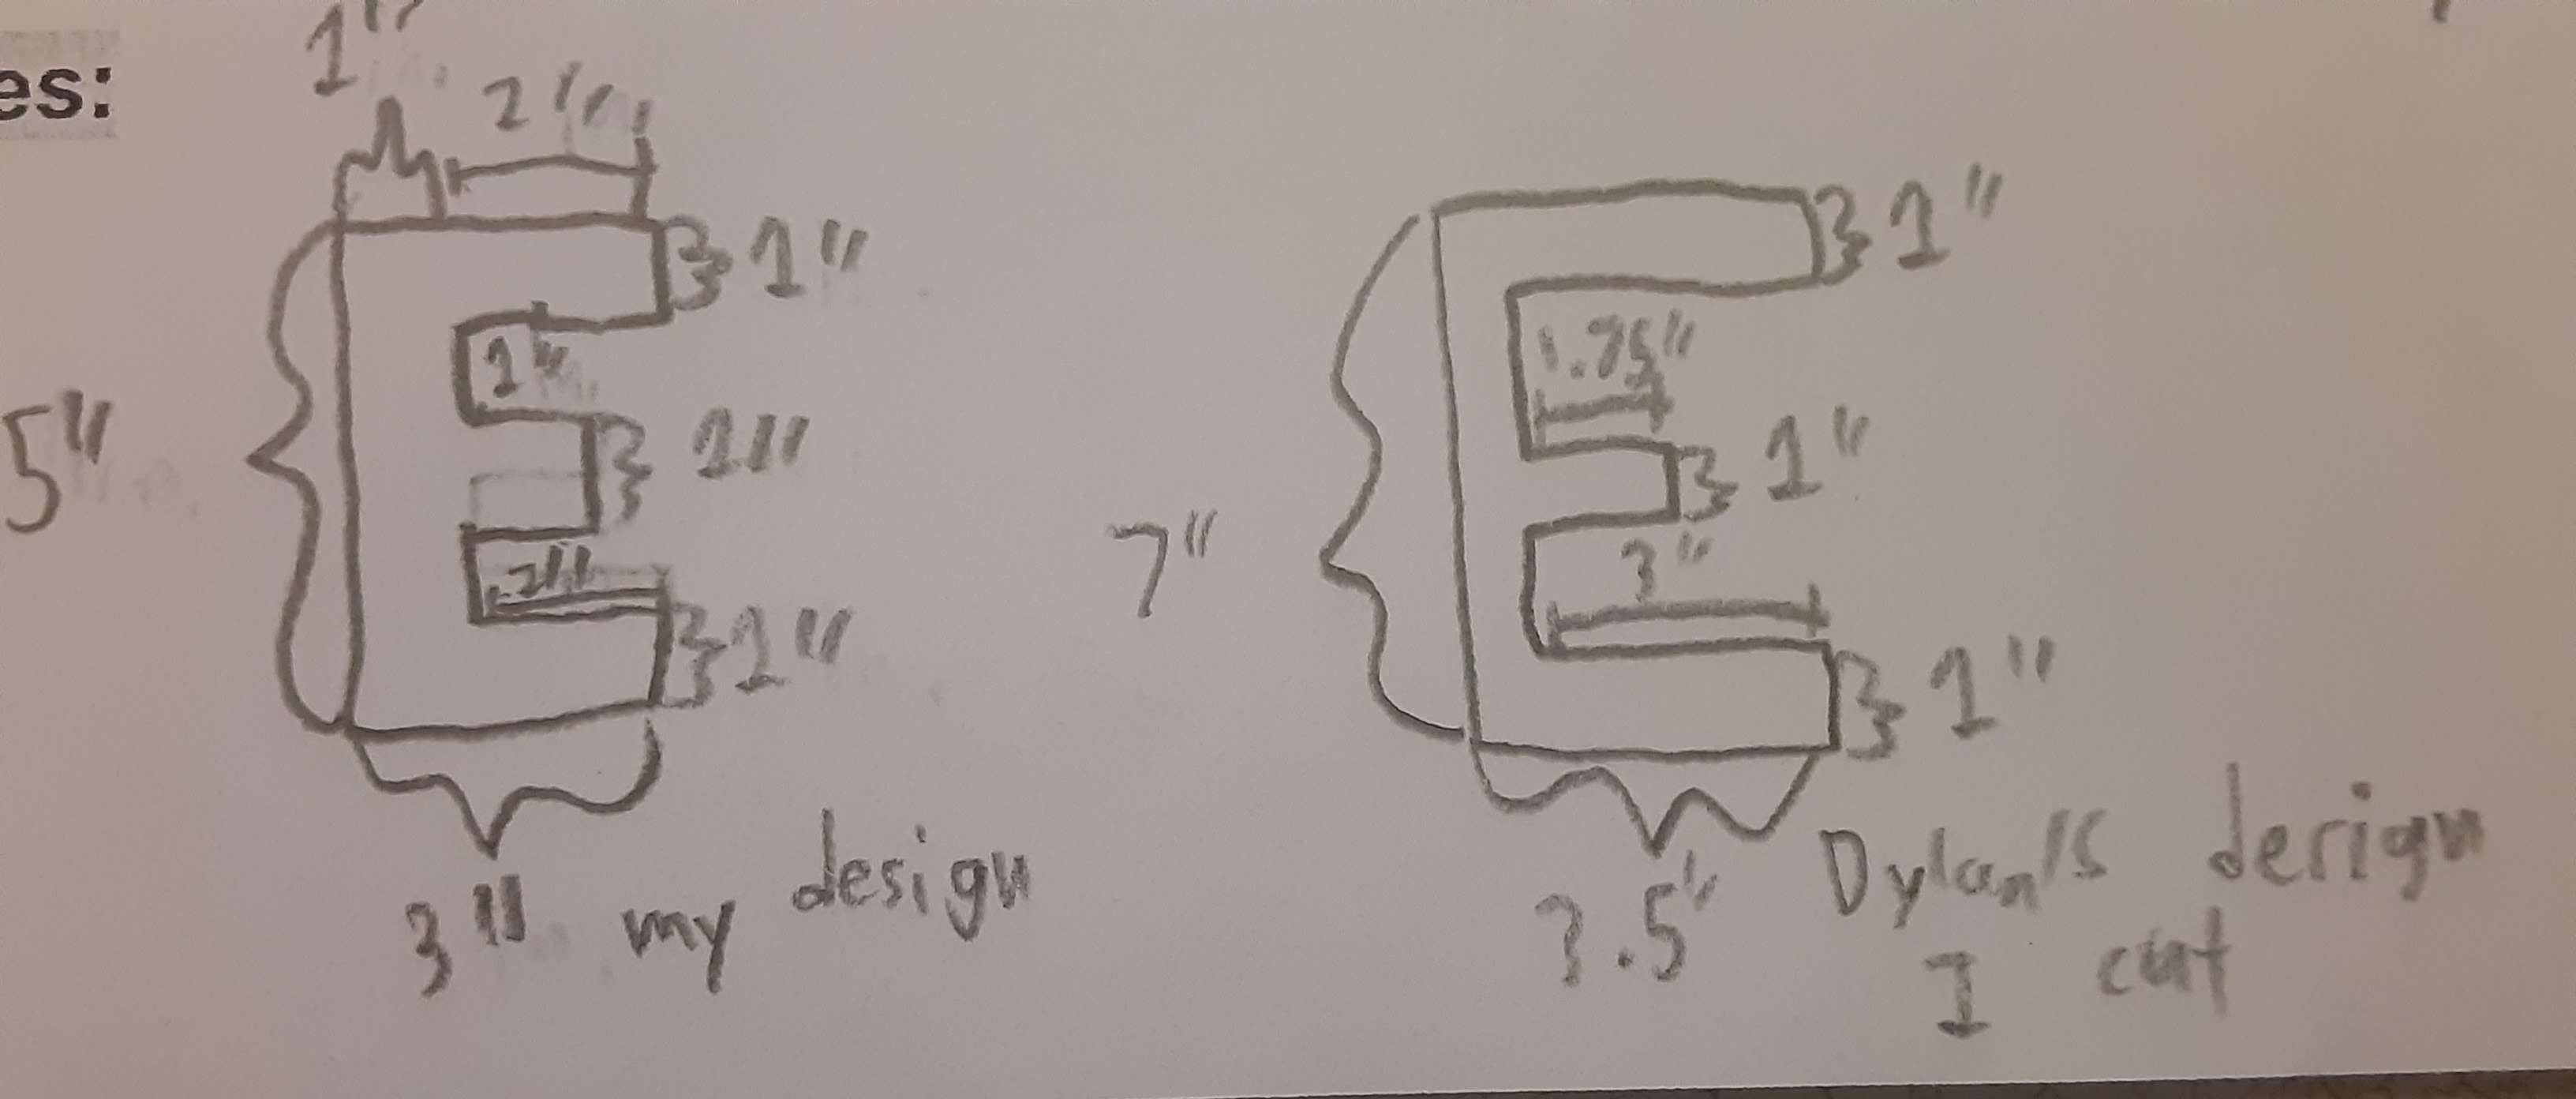 es:
1"
2"
1"
5"
1"
1"
2"
1"
3" my design
1"
1.75"
1"
7"
3"
1"
3.5"
Dylan's design
I cut